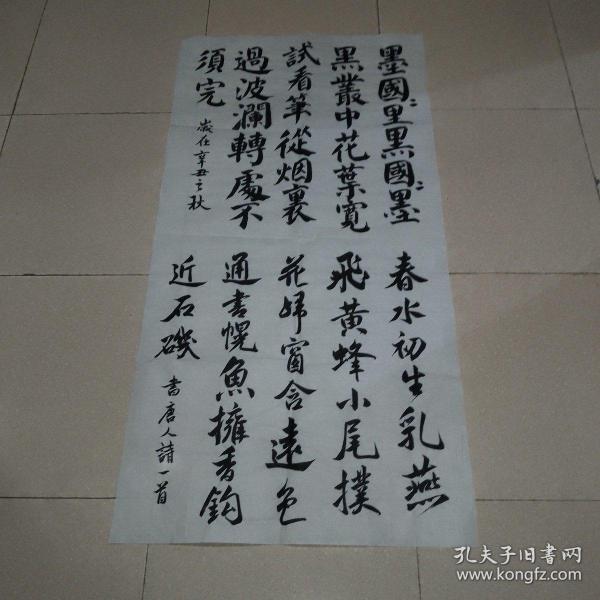 墨團:里黑團:墨
黑叢中花葉寬
試看筆從烟裏
過波瀾轉處不
須完
歲在辛丑之秋
春水初生乳燕
飛黄蜂小尾撲
花歸窗含遠色
通書幌魚擁香鈎
近石磯
書唐人詩一首
孔夫子旧书网
www.kongfz.com